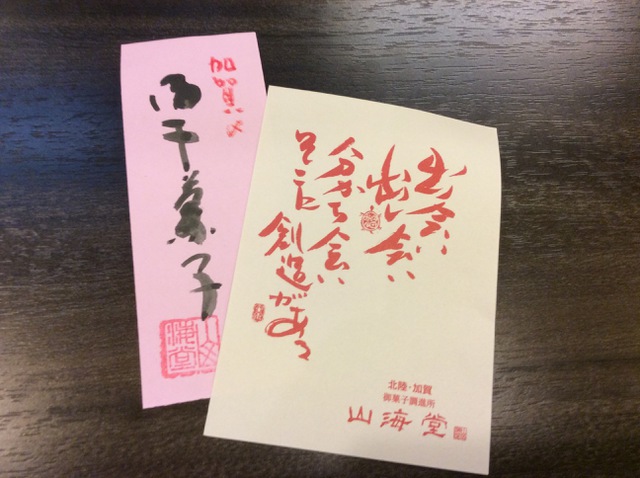 加賀
御干菓子
山海堂
出会い
出し会い
分かち会い
そこに
創造がある
北陸・加賀
御菓子調進所
山海堂